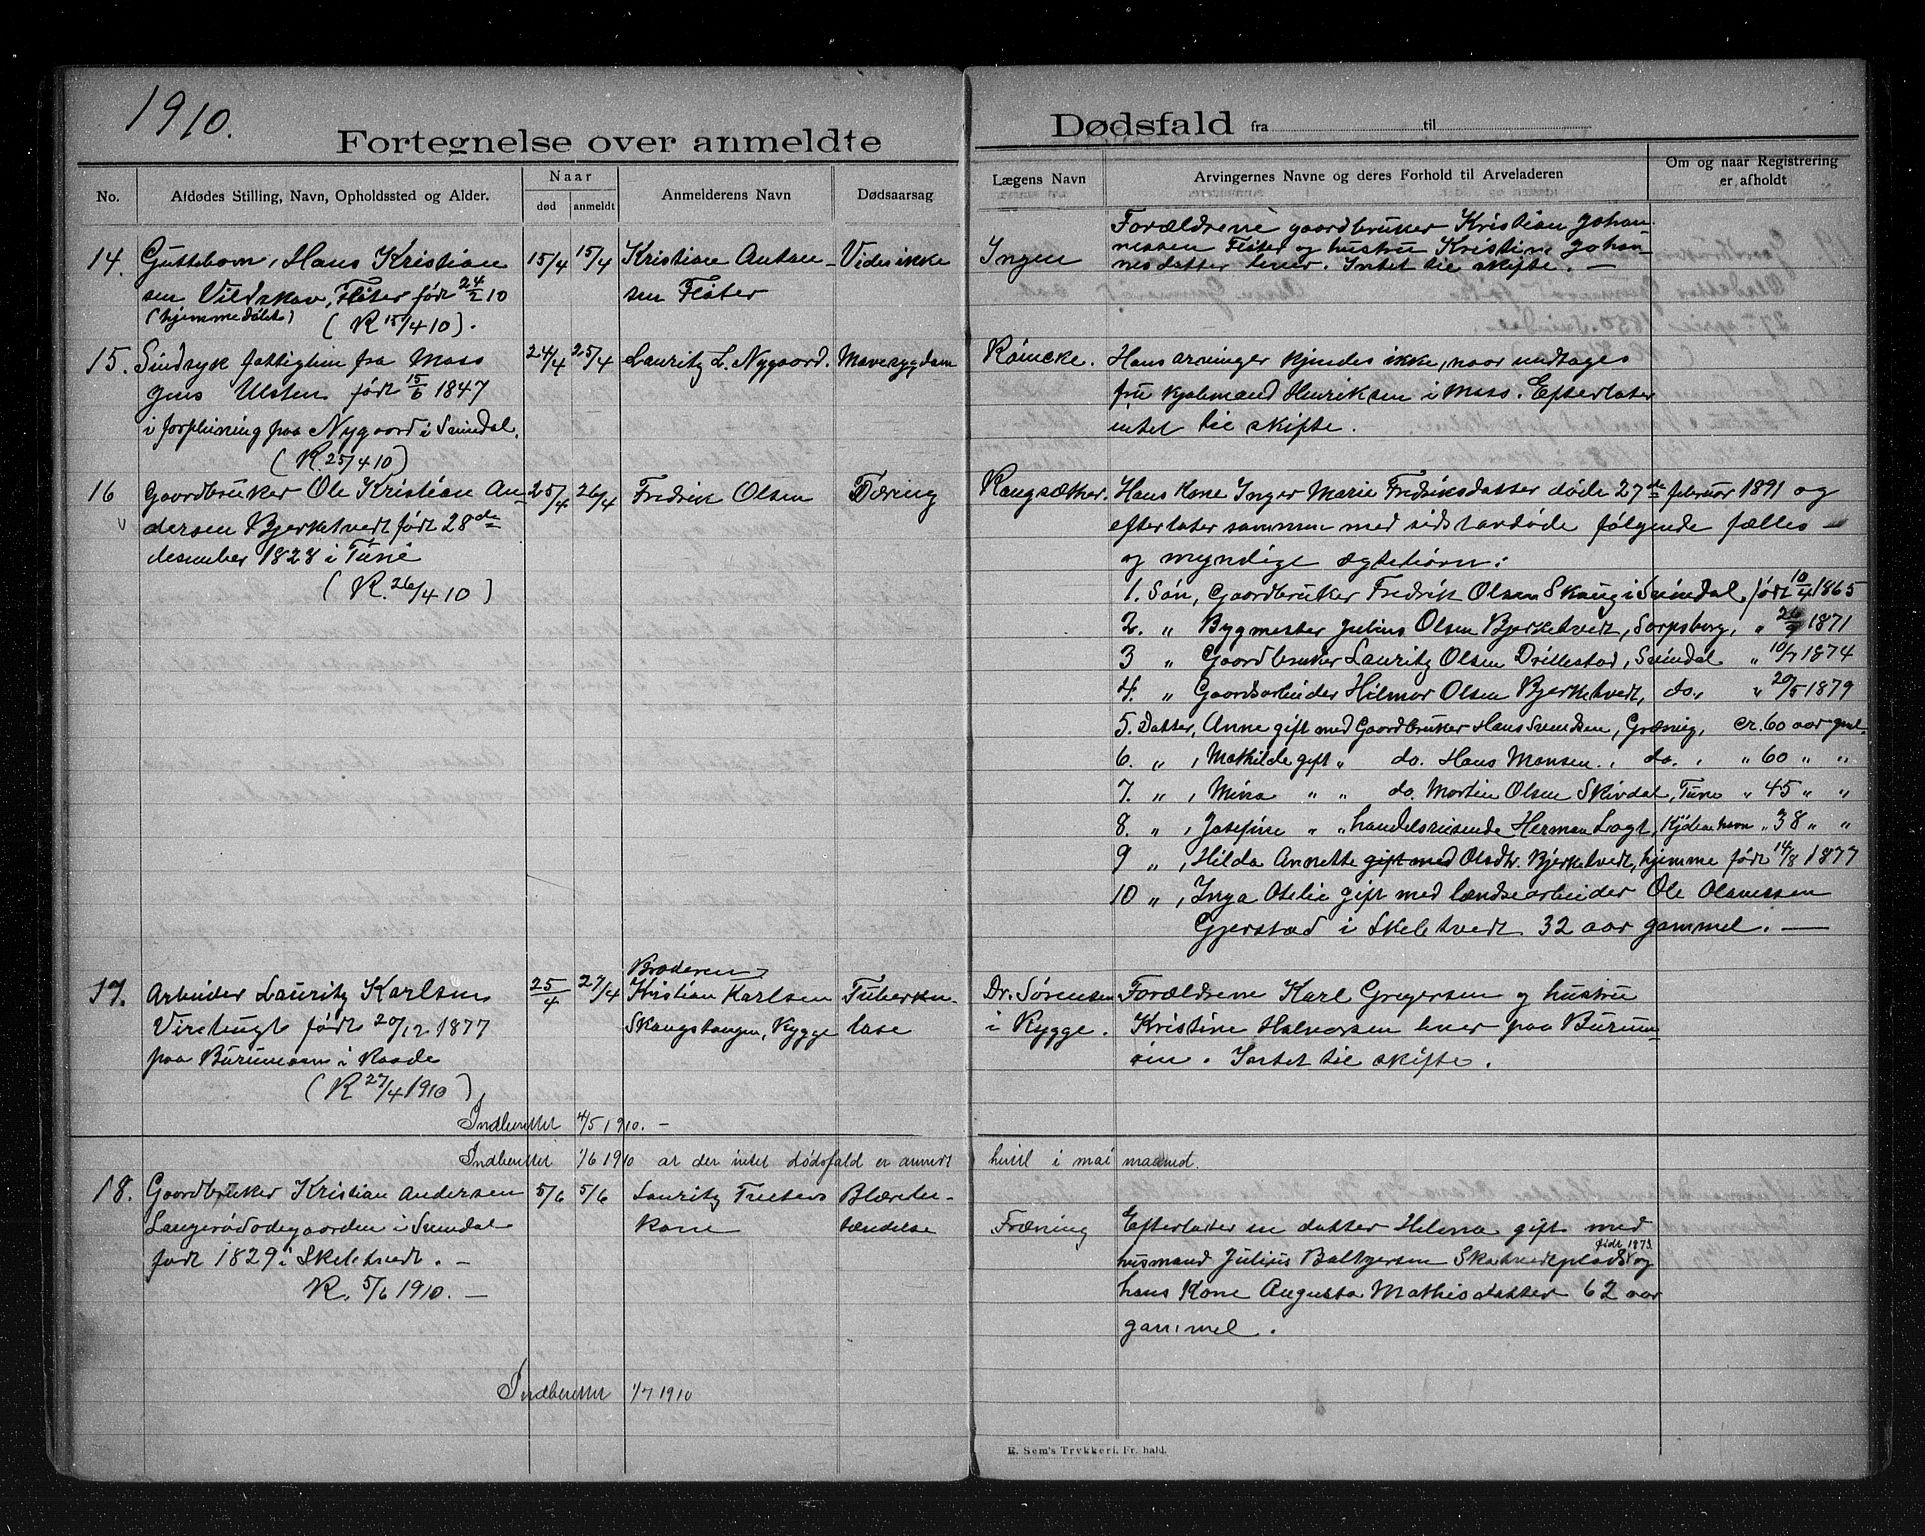 1910.
Fortegnelse over anmeldte
Dødsfald fra til
No.
Afdødes Stilling, Navn, Opholdssted og Alder.
Naar
død
anmeldt
Anmelderens Navn
Dødsaarsag
Lægens Navn
Arvingernes Navne og deres Forhold til Arveladeren
Om og naar Registrering
er afholdt
14.
Guttebarn, Hans Kristian
sen Vildskov, Fløter født 24/2 10
(hjemmedøbt) (R 15/4 10).
15/4
15/4
Kristian Antan
sen Fløter
Vides ikke
Ingen
Forældrene gaardbruker Kristian Johan-
nessen Fløter og hustru Kristine Johan-
nesdatter lever. Intet til skifte. —
15.
Sindsyk fattiglem fra Moss
Jens Ulsten født 15/6 1847
i forpleining paa Nygaard i Svindal.
(R. 25/4 10)
24/4
25/4
Lauritz L. Nygaard.
Mavesygdom
Râmcke.
Hans arvinger kjendes ikke, naar undtages
fru kjøbmand Henriksen i Moss. Efterlater
intet til skifte.
16
Gaardbruker Ole Kristian An-
dersen Bjerketvedt født 28de
desember 1828 i Tune
(R. 26/4 10)
25/4
26/4
Fredrik Olsen
Tæring
Raugsæther.
Hans kone Inger Marie Fredriksdatter døde 27de februar 1891 og
efterlater sammen med sidstavdøde følgende fælles
og myndige egtebørn:
1. Søn, Gaardbruker Fredrik Olsen Skaug i Svindal, født 10/4 1865
2. „ Bygmester Julius Olsen Bjerketvedt, Sarpsborg, „ 26/9 1871
3 „ Gaardbruker Lauritz Olsen Drillestad, Svindal „ 10/7 1874
4. „ Gaardsarbeider Hilmar Olsen Bjerketvedt, do., „ 20/5 1879
5. Datter, Anne gift med Gaardbruker Hans Svendsen, Græning, cr. 60 aar gml.
6. „ , Mathilde gift „ do. Hans Monsen, do., „ 60 „ „
7. „ , Mina „ „ do. Martin Olsen Skivdal, Tune „ 45 „ „
8. „ , Josefine „ „ handelsreisende Herman Lagt, Kjøbenhavn „ 38 „ „
9 „ , Hilda Annette gift med Olsdtr. Bjerketvedt, hjemme født 14/8 1877
10 „ , Inga Otelie gift med lændsearbeider Ole Olavessen
Gjerstad i Skeletvedt 32 aar gammel. —
17.
Arbeider Lauritz Karlsen
Virstingt født 20/12 1877
paa Burumoen i Raade
(R 27/4 1910)
25/4
27/4
Broderen
Kristian Karlsen
Skaugstangen, Rygge
Tuberku-
lose
Dr. Sørensen
i Rygge.
Forældrene Karl Gregersen og hustru
Kristine Halvorsen lever paa Burum-
oen. Intet til skifte.
Indberettet 4/5 1910. —
Indberettet 1/6 1910 at der intet dødsfald er anmeldt
hertil i mai maaned.
18.
Gaardbruker Kristian Andersen
Langerødødegaarden i Svindal
født 1829 i Skeletvedt. —
R. 5/6 1910. —
5/6
5/6
Lauritz
kone
Blærebe-
tændelse
Fræning
Efterlater en datter Helena gift med
født 1873.
husmand Julius Baltzersen Skatvedtplads og
hans Kone Augusta Mathisdatter 62 aar
gammel.
Indberettet 1/7 1910
E. Sem's Trykkeri, Fr. hald.